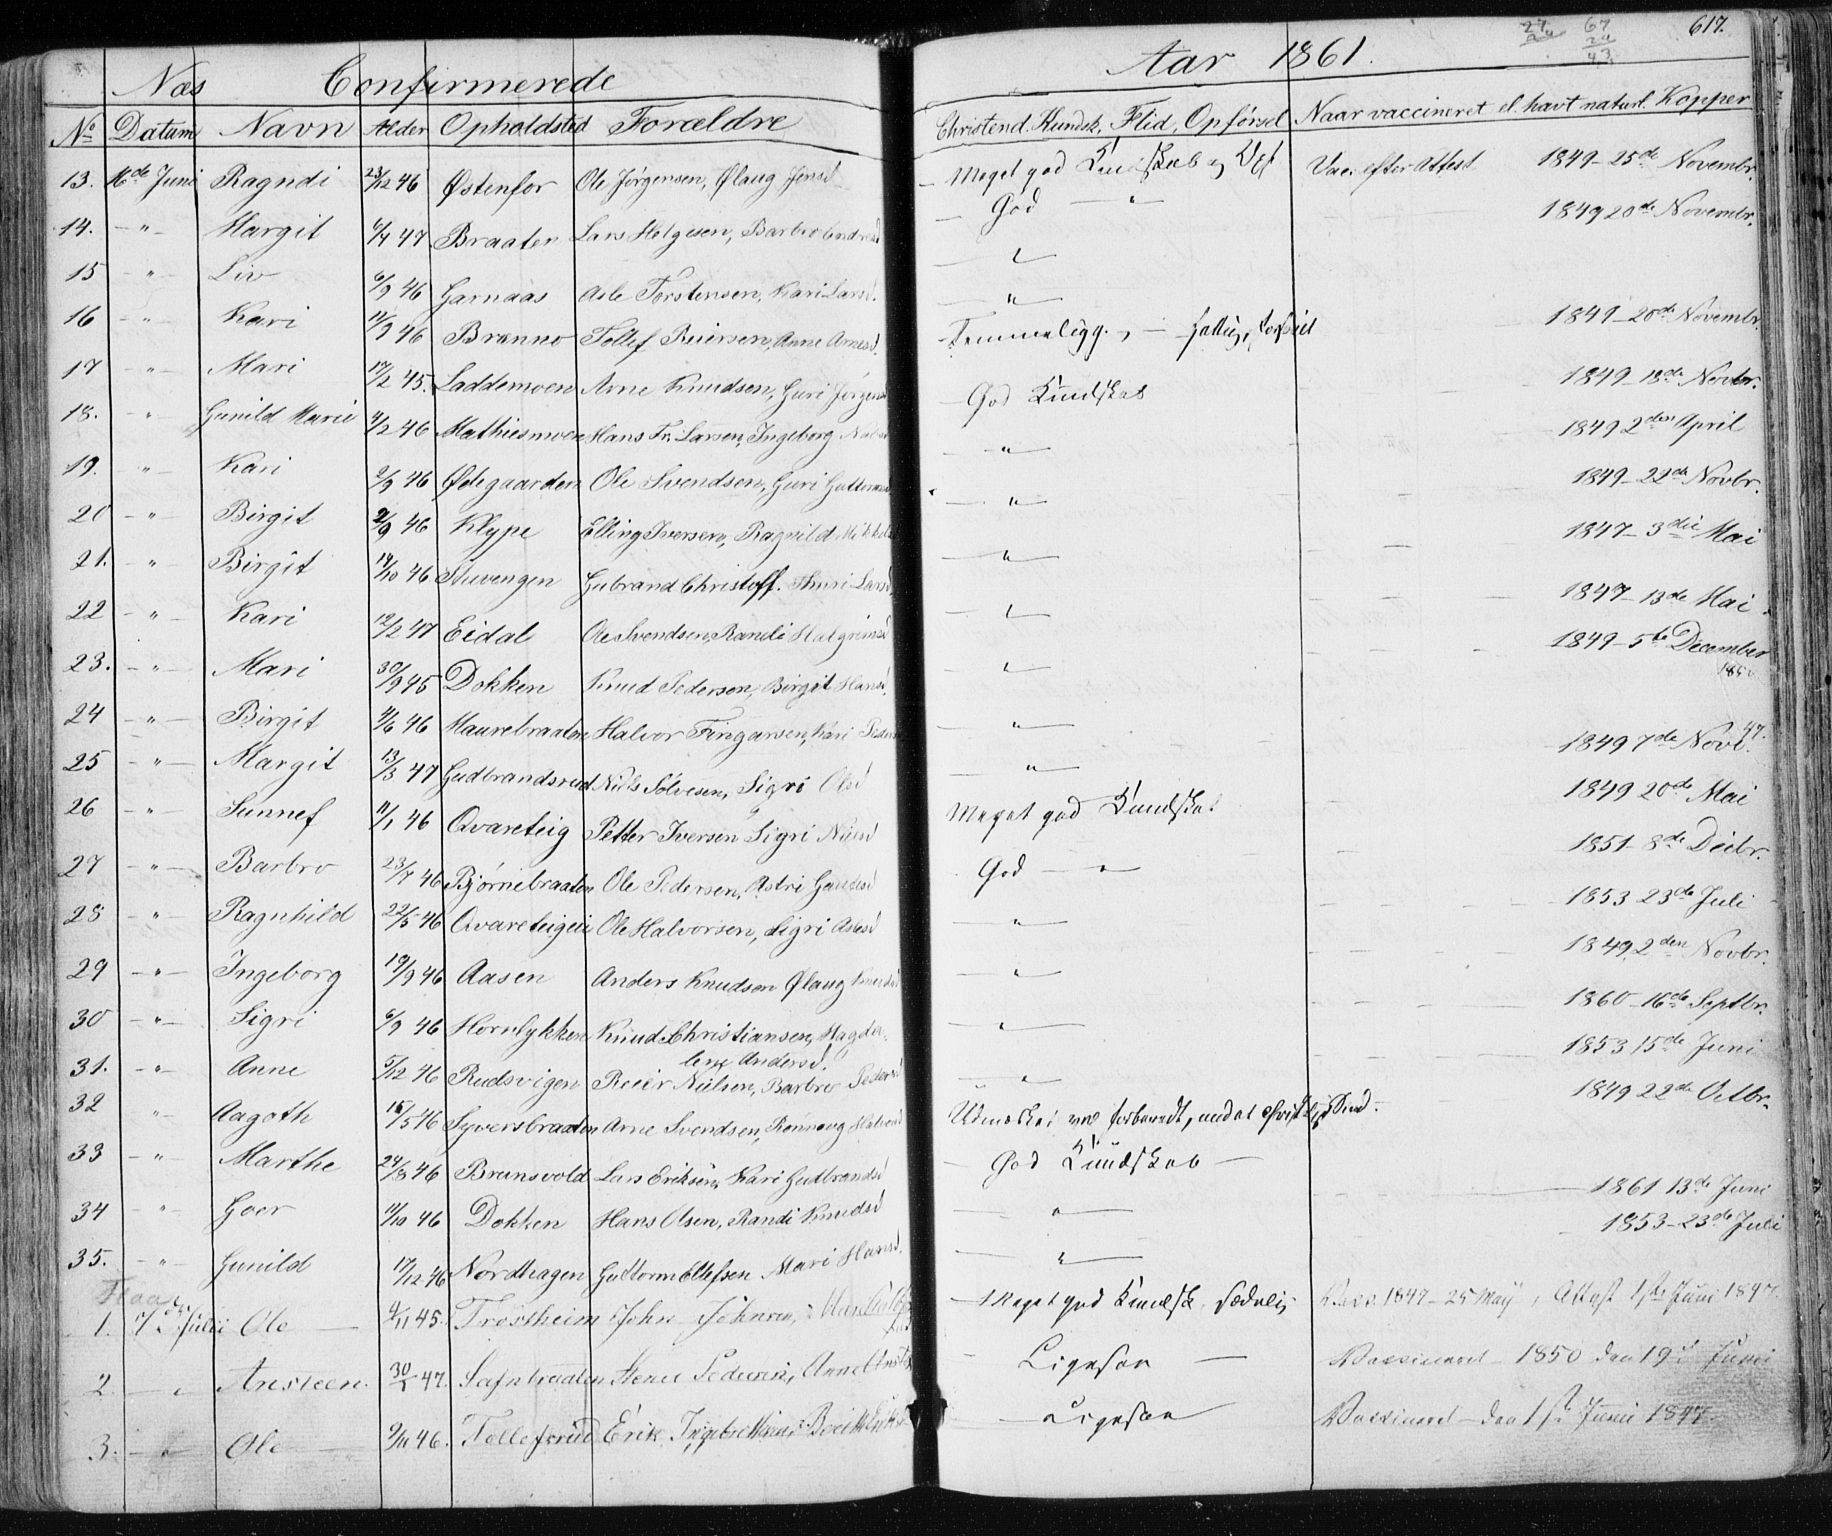 617.
Næs Confirmerede Aar 1861.
No Datum Navn Alder Opholdsted Forældre Christend. Kundsk, Flid, Opførsel Naar vaccineret el. havt naturl. Kopper
13. 16de Juni Ragndi 23/12 46 Østenfor Ole Jørgensen, Ølaug Jensd – Meget god Kundskab og Vac. efter Attest 1849 – 25de Novembr.
14. – " – Margit 6/4 47 Braaten Lars Helgesen, Barbro – God – " – 1849 20de Novembr.
15 – " – Liv 6/9 46 Garnaas Asle Torstensen, Kari Larsd. – " –
16 – " – Kari 11/9 46 Brenno Tollef Reiersen, Anne Arnesd. – " – 1849 – 20de Novembr.
17 – " – Mari 17/2 45. Laddemoen Arne Knudsen, Guri Jørgensd Temmelig g. – fattig, forsømt 1849 – 18de Novbr.
18. – " – Gunild Marie 4/2 46 Mathiesmoen Hans Fr. Larsen, Ingeborg – God Kundskab 1849 2den April
19. – " – Kari 2/9 46 Ødegaarden Ole Svendsen, Guri Guttormsd – " – 1849 – 22de Novbr.
20 – " – Birgit 2/9 46 Klype Elling Iversen, Ragnild Mikkelsd – " – 1847 – 3die Mai
21. – " – Birgit 14/10 46 Stuvengen Gubrand Christoff. Thuri Larsd – " – 1847 – 13de Mai
22 – " – Kari 12/2 47 Eidal Ole Svendsen, Randi Halgrimsd – " – 1849 – 5te December
23. – " – Mari 30/9 45 Dokken Knud Pedersen, Birgit Hansd. – " –
24 – " – Birgit 4/6 46 Maurebraaten Halvor Fingarsen, Kari Pedersd – " – 1849 7de Novb.
25 – " – Margit 13/3 47 Gudbrandsrud Niels Sølvesen, Sigri Olsd – " – 1849 20de Mai
26 – " – Sunnef 11/1 46 Qvareteig Petter Iversen Sigri Nielsd Meget god Kundskab 1851 – 8de Decbr.
27 – " – Barbro 23/7 46 Bjørnebraaten Ole Pedersen, Astri God – " – 1853 23de Juli
28 – " – Ragnhild 22/5 46 Qvareteigen Ole Halvorsen, Sigri Aslesd – " – 1849, 2den Novbr.
29 – " – Ingeborg 19/9 46 Aasen Anders Knudsen Ølaug Knudsd – " – 1860 – 16de Septbr.
30 – " – Sigri 6/9 46 Hornlykken Knud Christiansen, Magda-
lene Andersd. – " – 1853 15de Juni
31. – " – Anne 5/12 46 Rudsvigen Reier Nielsen, Barbro Pedersd – " – 1849 22de Octbr.
32 – " – Aagoth 15/5 46 Syversbraaten Arne Svendsen, Rønnaug Halvorsd
33 – " – Marthe 24/8 46 Brunsvold Lars Eriksen, Kari Gudbrandsd – God Kundskab – 1861 13de Juni
34 – " – Goer 11/10 46 Dokken Hans Olsen, Randi Knudsd – " – 1853 – 23de Juli
35. – " – Gunild 17/12 46 Nordhagen Guttorm Ellefsen Mari Hansd. – " –
Flaa
1. 7de Julii Ole 4/11 45. Trøstheim John Johnsen, – Meget god Kundsk. sædelig Vacc. 1847 – 25 May, Attest 1ste Juni 1847.
2. – " Aresteen. 30/1 47. Safnbraaten Pedersen, Anne – Ligesaa – Vaccineret – 1850 den 19de Junii
3. – " – Ole 9/11 46. Tollefsrud Erik Ingebrethsen, Berit – Ligesaa Vaccineret – den 1ste Junii 1847.